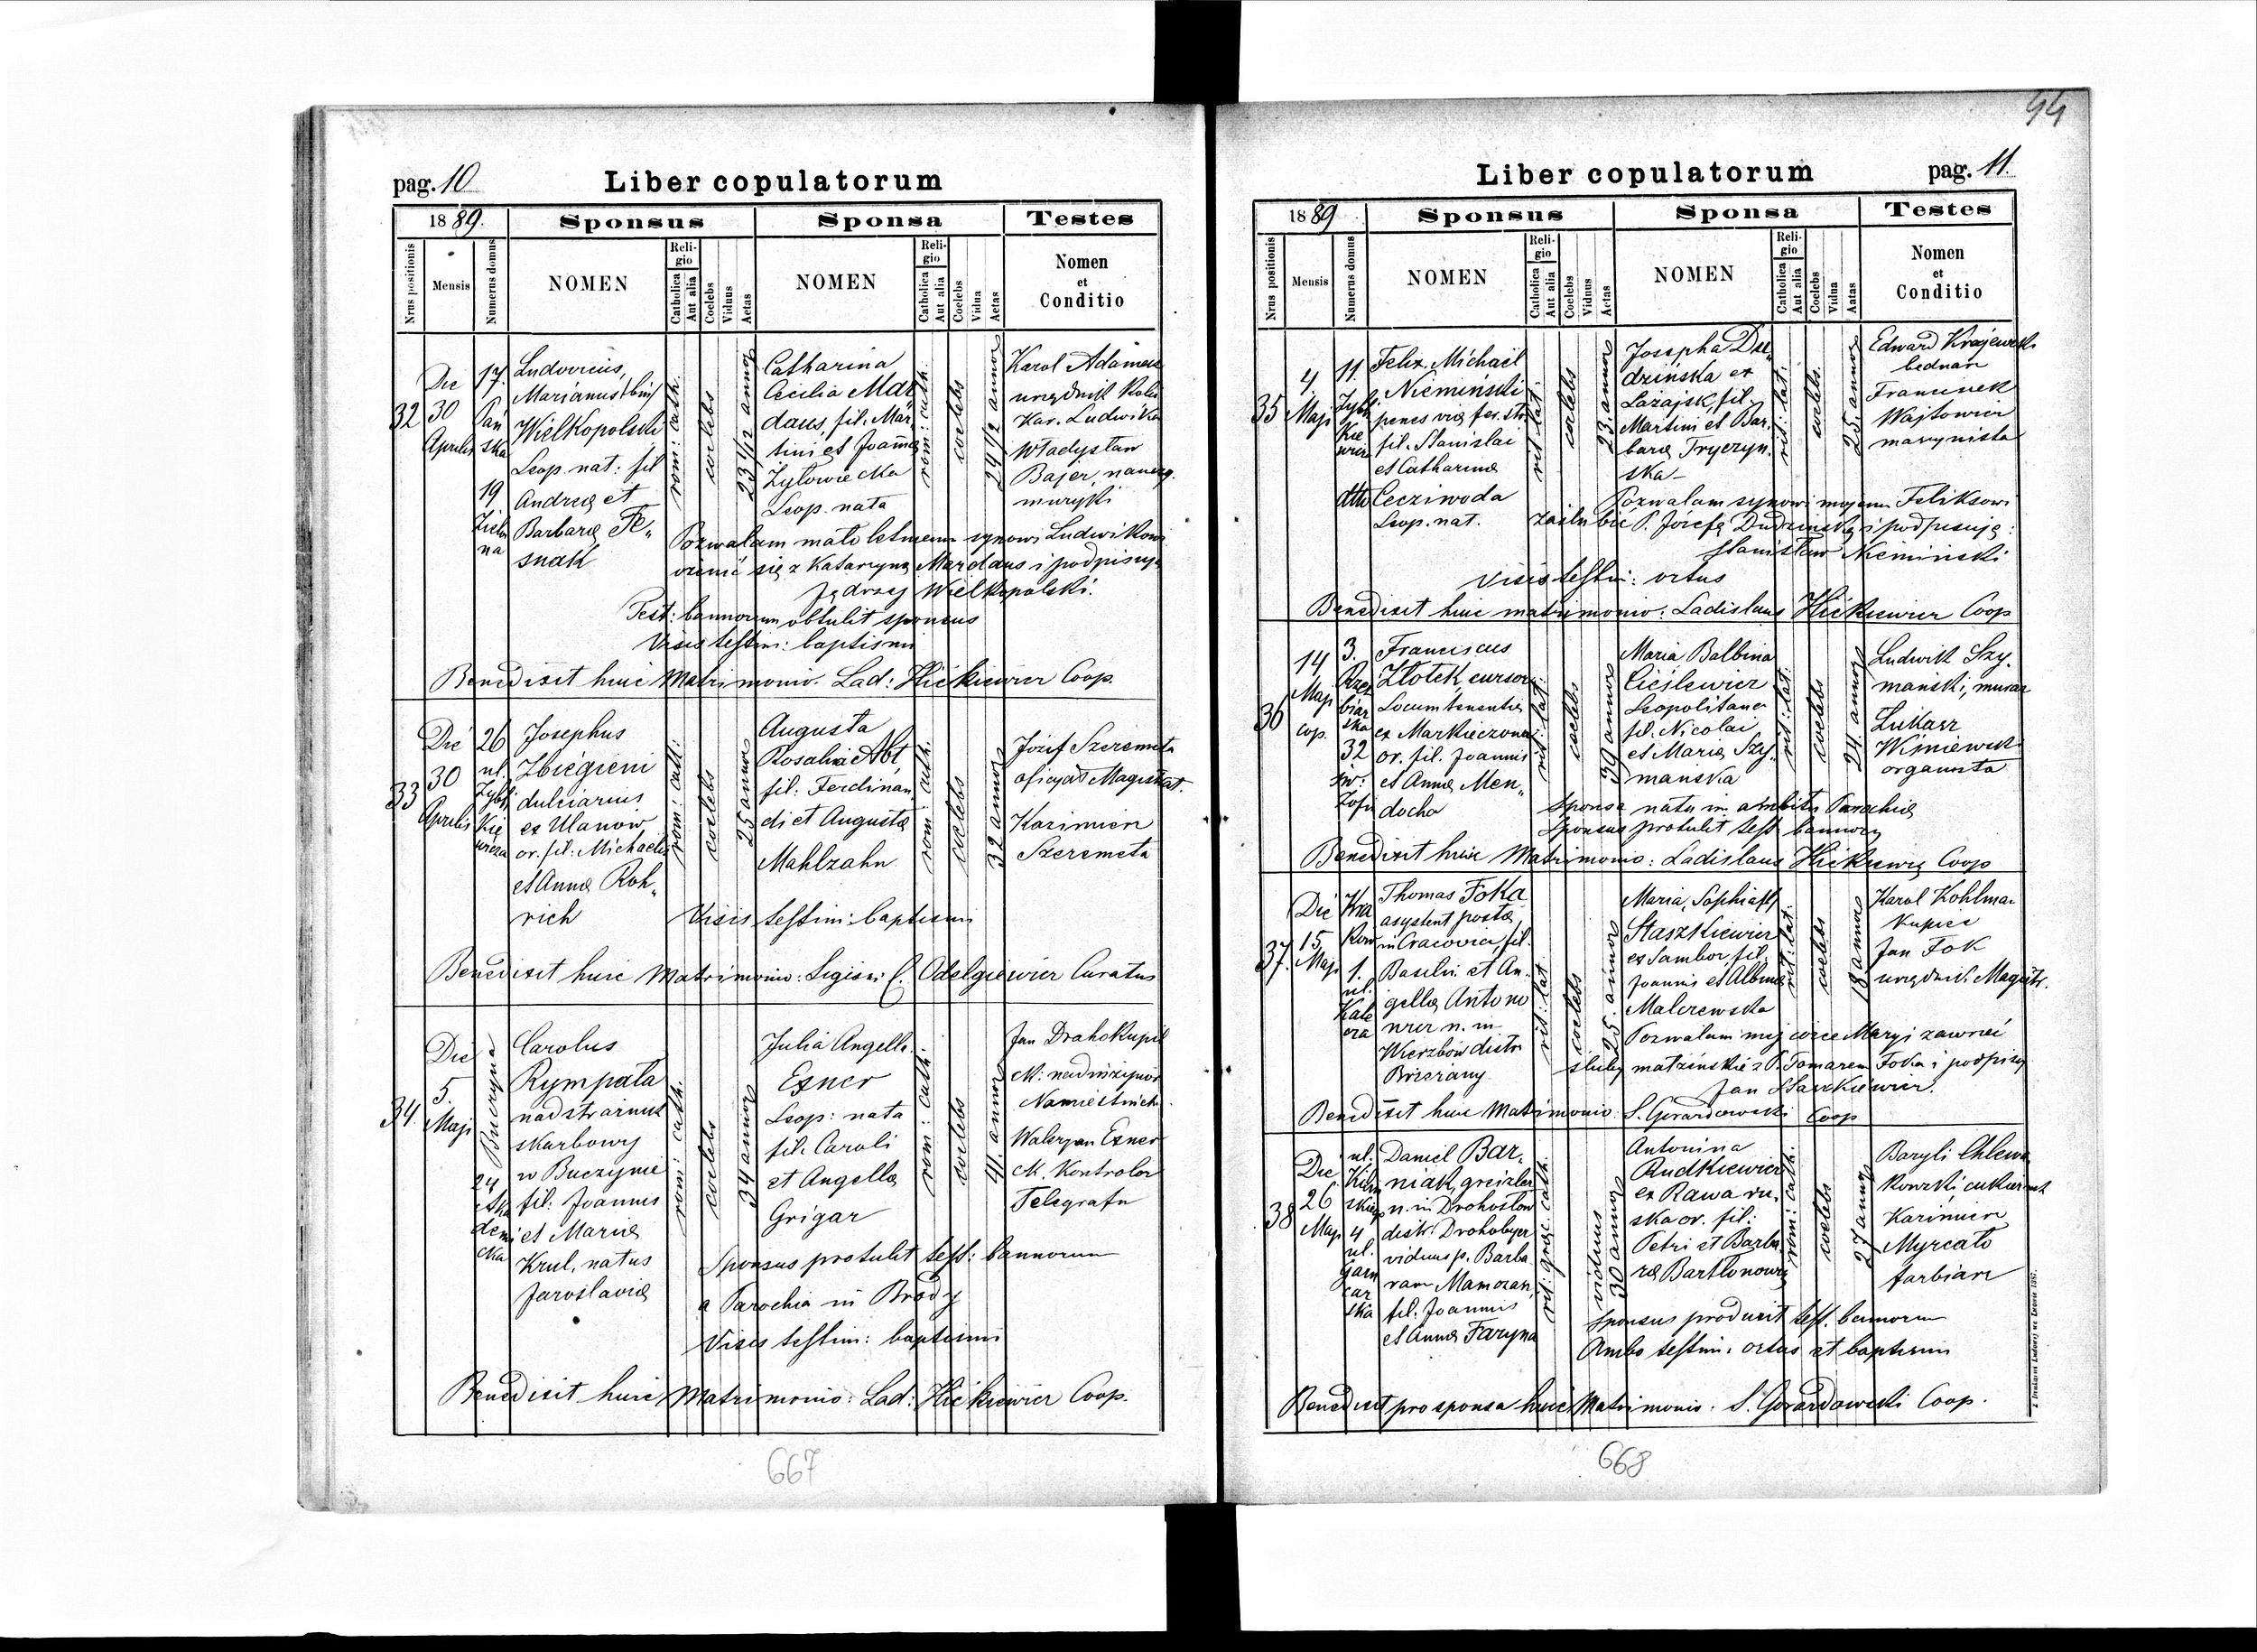 44
pag. 10
Liber copulatorum
1889.
Sponsus
Sponsa
Testes
Nrus positionis
Mensis
Numerus domus
NOMEN
Religio
Catholica
Aut alia
Coelebs
Viduus
Aetas
NOMEN
Religio
Catholica
Aut alia
Coelebs
Vidua
Aetas
Nomen
et
Conditio
32
Die
30
Aprilis
17.
Pań
ska
19
Zielo
na
Ludovicus,
Marianus
Wielkopolski
Leop. nat: fil
Andreę et
Barbarę Fe„
snak
rom: cath.
coelebs
23 1/2 annor
Catharina
Cecilia Mar
daus, fil. Mar„
tini et Joannę
Leop. nata
rom: cath.
coelebs
24 1/2 annor
Karol Adamek
urzędnik Kolei
Kar. Ludwika
Władysław
Bajer, naucz.
muzyki
Pozwalam małoletniemu synowi Ludwikowi
żenić się z Katarzyną Mardaus i podpisuję
Jędrzej Wielkopolski.
Test: bannorum obtulit sponsus
Visis testim: baptismi
Benedixit huic Matrimonio. Lad: Hićkiewicz Coop.
33
Die
30
Aprilis
26
ul.
Zybli
kie
wicza
Josephus
Zbiegieni
dulciarius
ex Ulanow
or. fil: Michaelis
et Annę Roh„
rich
rom: cath:
coelebs
25 annor
Augusta
Rosalia Abt,
fil: Ferdinan„
di et Augustę
Mahlzahn
rom: cath.
coelebs
32 annor
Józef Szeremeta
oficyał Magistrat.
Kazimierz
Szeremeta
Visis testim: baptismi
Benedixit huic Matrimonio: Odelgiewicz Curatus
34
Die
5.
Maji
24
Aka
demi
cka
Carolus
Rympała
nadstrażnik
skarbowy
w Buczynie
fil. Joannis
et Marię
Krul, natus
Jaroslavię
rom: cath.
coelebs
34 annor
Julia Angella
Exner
Leop: nata
fil. Caroli
et Angellę
Grigar
rom: cath.
coelebs
41. annor
Jan Drahokupil
ck: nadinżynier
Namiestnictw.
Waleryan Exner
ck. Kontrolor
Telegrafu
Sponsus protulit test: bannorum
a Parochia in Brody
Visis testim: baptismi
Benedixit huic Matrimonio: Lad: Hićkiewicz Coop.
667
Liber copulatorum
pag. 11.
1889
Sponsus
Sponsa
Testes
Nrus positionis
Mensis
Numerus domus
NOMEN
Religio
Catholica
Aut alia
Coelebs
Viduus
Aetas
NOMEN
Religio
Catholica
Aut alia
Coelebs
Vidua
Aatas
Nomen
et
Conditio
35
4
Maji
11.
Zybli
kie
wicza
dtto
Felix Michael
Niemiński
penes vię fer. str.
fil. Stanislai
et Catharinę
Cecziwoda
Leop. nat.
rit: lat.
coelebs
23. annor
Josepha Du„
dzińska ex
Lażajsk, fil.
Martini et Bar.
barę Tryczyn.
ska
rit: lat.
coelebs.
25. annor
Edward Krajewski
bednarz
Franciszek
Wajtowicz
maszynista
Pozwalam synowi mojemu Feliksowi
zaślubić P. Józefę Dudzinską i podpisuję:
Stanisław Niemiński
Visis testim: ortus
Benedixit huic matrimonio: Ladislaus Hićkiewicz Coop
36
14
Maji
cop.
3.
Rzeź
biar
ska
32
św.
Zofii
Franciscus
Złotek, cursor
Locumtenentię
ex Markieczowa
or. fil. Joannis
et Annę Men„
docha
rit: lat.
coelebs
39 annor
Maria Balbina
Cieślewicz
Leopolitana
fil. Nicolai
et Marię Szy„
mańska
rit: lat.
coelebs
24. annor
Ludwik Szy.
mański, murarz
Łukasz
Wiśniewski
organista
Sponsa nata in ambitu Parochię
Sponsus protulit test bannor
Benedixit huic Matrimonio: Ladislaus Hićkiewicz Coop
37.
Die
15
Maji
Kra
kow
1.
ul.
Kale
cza
Thomas Foka
asystent postę
in Cracovia, fil.
Basilii et An.
gellę Antono
wicz n. in
Wierzbów distr
Brzeżany
rit: lat
coelebs
25. annor
Maria, Sophia
Staszkiewicz
ex Sambor, fil.
Joannis et Albinę
Malczewska
rit: lat.
coelebs
18 annor
Karol Kohlman
Kupiec
Jan Fok
urzędnik Magistr.
Pozwalam mej córce Maryi zawrzeć
śluby małżeńskie z P. Tomaszem Foka i podpisuję
Jan Staszkiewicz.
Benedixit huic Matrimonio S. Gorardowski Coop
38
Die
26
Maji
ul.
Kiliń
skiego
4
ul.
Garn
car
ska
Daniel Bar.
niak, greizler
n. in Drohosłow
distr. Drohobycz
viduus p. Barba
ram Mamozan,
fil. Joannis
et Annę Faryna
rit: gręc. cath.
viduus
30 annor
Antonina
Rudkiewicz
ex Rawa ru.
ska or. fil:
Petri et Barba
rę Bartłonowę
rom: cath:
coelebs
27 annor
Baryli Chlewa
kowski, cukiernik
Kazimierz
Myrcało
farbiarz
Sponsus produxit test. bannorum
Ambo testim: ortus et baptismi
Benedixit pro sponsa huic Matrimonio: S. Gorardowski Coop.
668